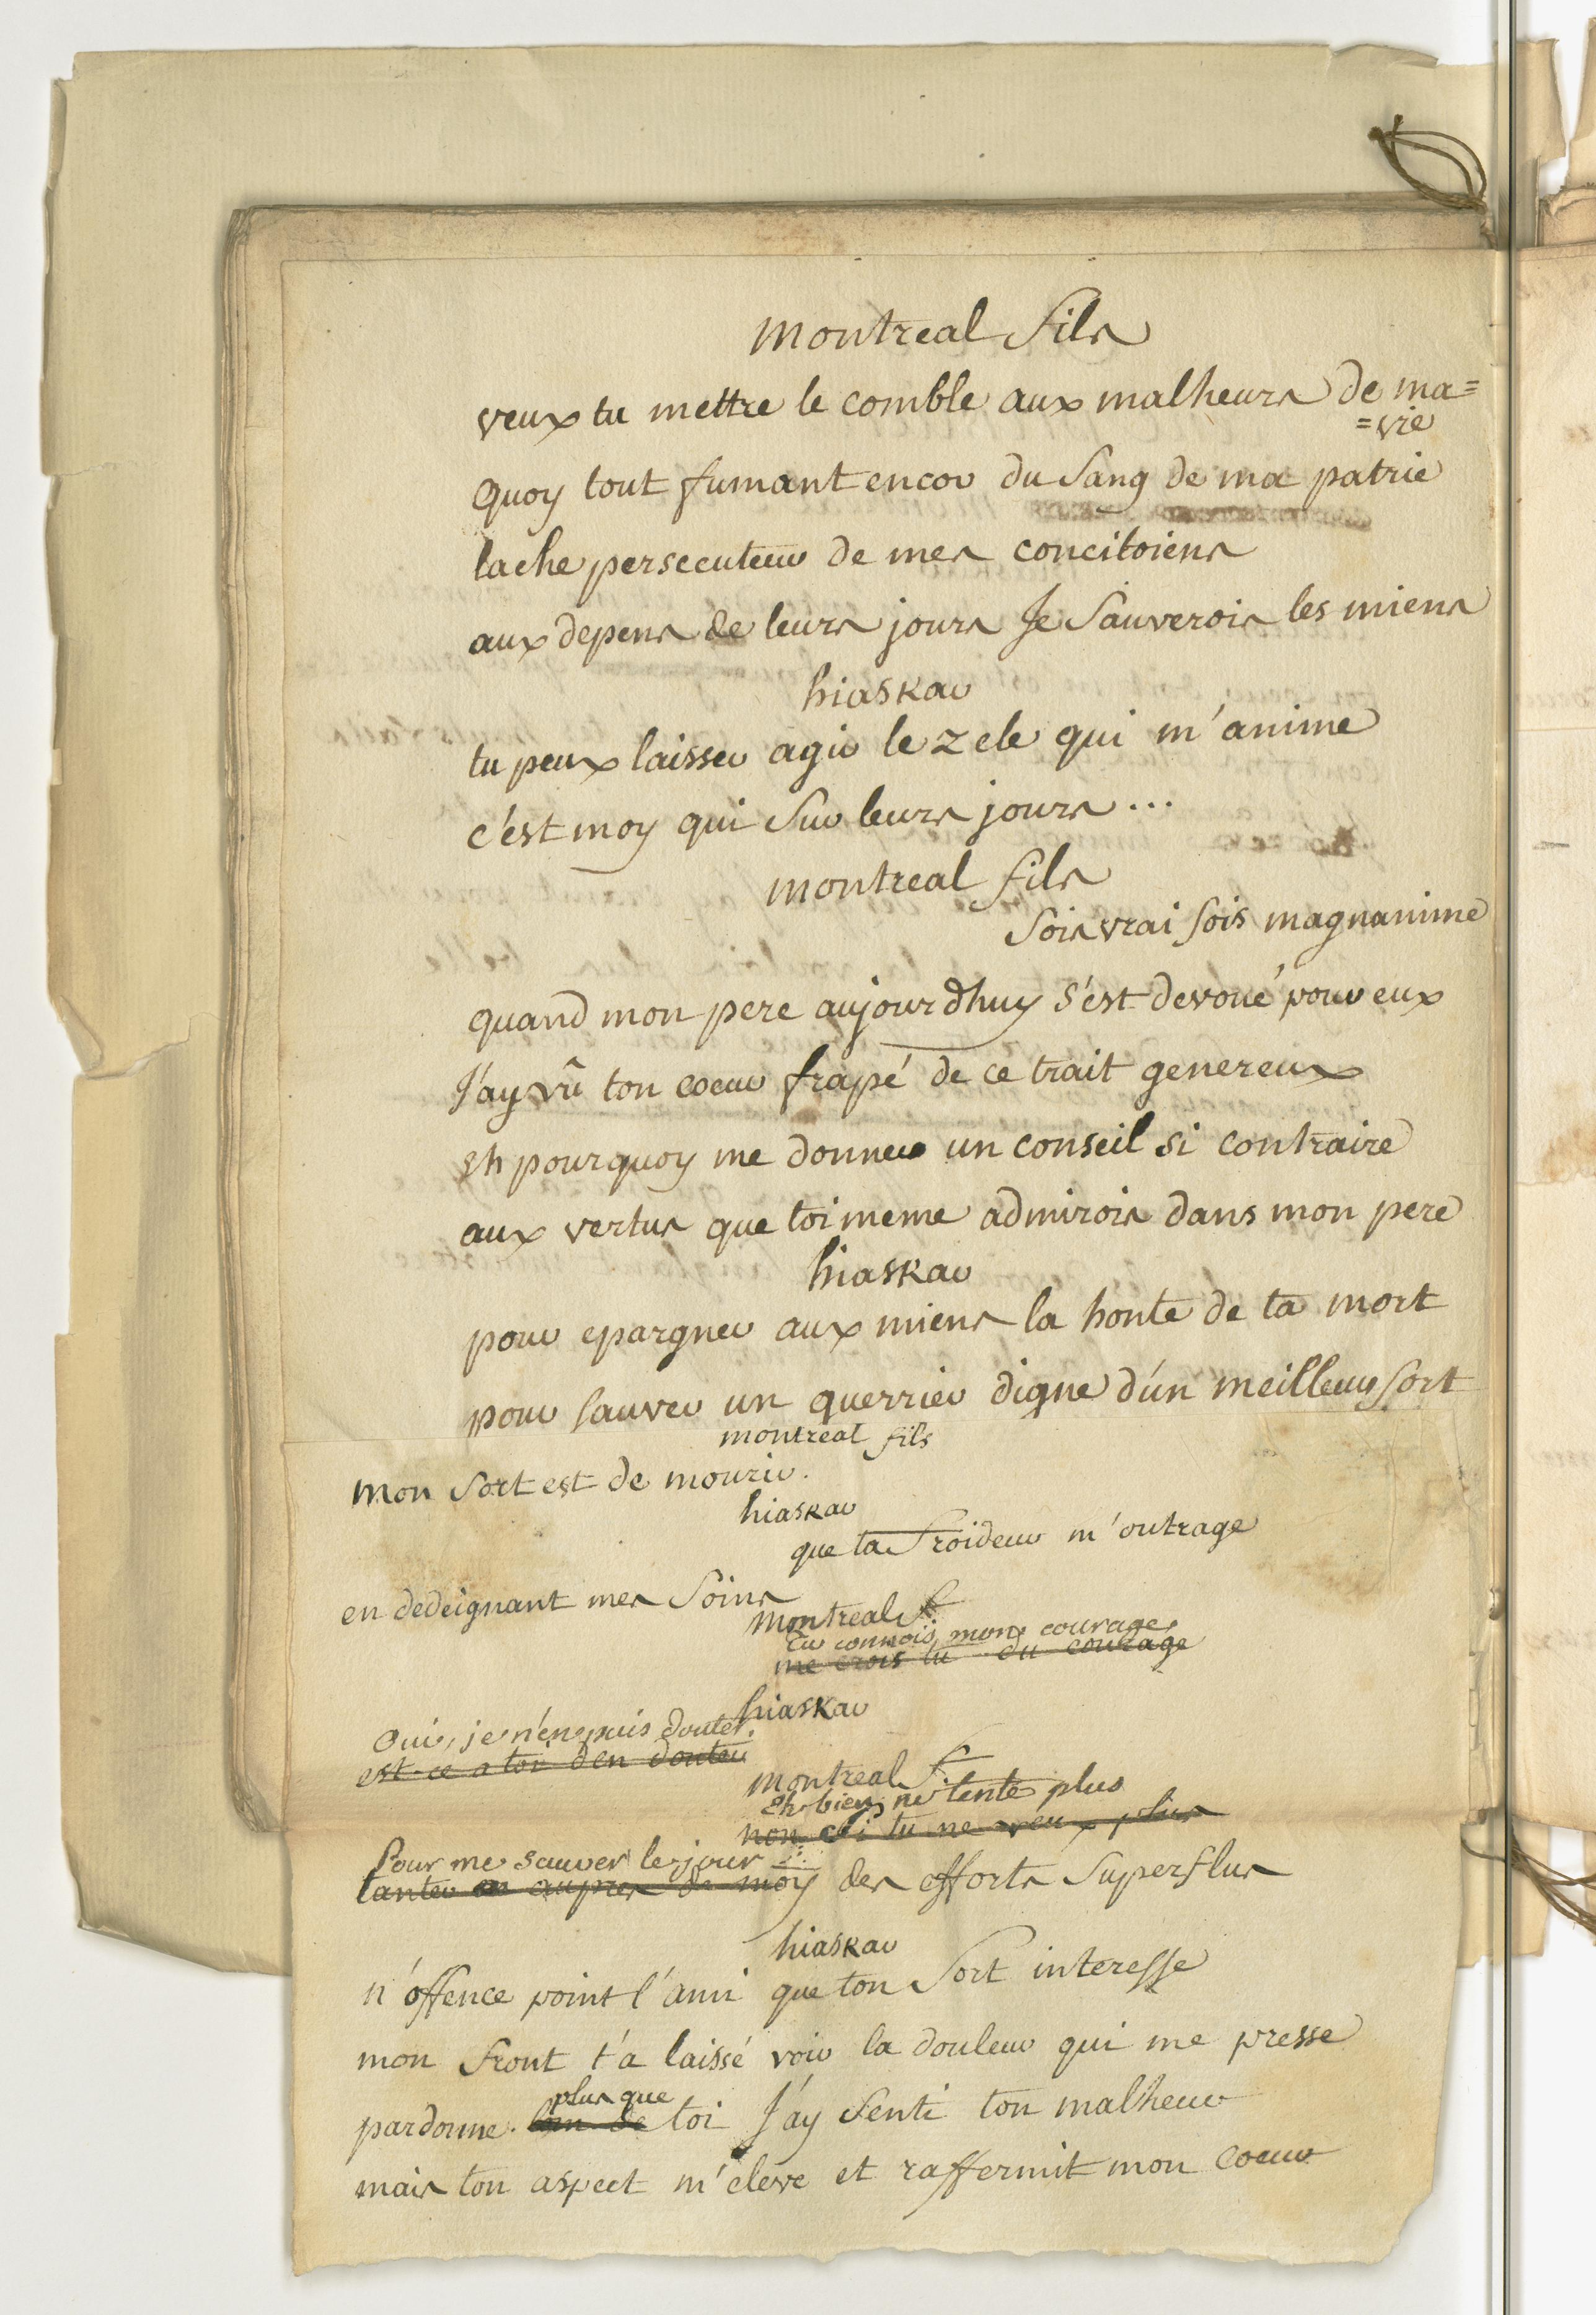 montreal fils
veux tu mettre le comble aux malheurs de ma=
=vie
quoy tout fumant encor du sang de ma patrie
lache persecuteur de mes concitoiens
aux depens de leurs jours Je sauverois les miens
hiaskar
tu peux laisser agir le zele qui m'anime
c'est moy qui sur leurs jours...
montreal fils
sois vrai sois magnanime
quand mon pere aujourdhuy s'est devoué pour eux
J'ay vû ton coeur frapé de ce trait genereux
eh pourquoy me donner un conseil si contraire
aux vertus que toi meme admirois dans mon pere
hiaskar
pour epargner aux miens la honte de ta mort
pour sauver un guerrier digne d'un meilleur sort
montreal fils
mon sort est de mourir.
hiaskar
que ta froideur m'outrage
en dedeignant mes soins
montreal f.
Tu connois, mon courage,
me crois tu du courage
hiaskar
Oui, je n'en puis douter.
est-ce a toi d'en douter
montreal f.
Eh bien, ne tente plus
non si tu ne veux plus
Pour me sauver le jour
tanter aupres de moy des efforts superflus
hiaskar
n'offence point l'ami que ton sort interesse
mon front t'a laissé voir la douleur qui me presse
plus que
pardonne. loin de toi J'ay senti ton malheur
mais ton aspect m'eleve et raffermit mon coeur